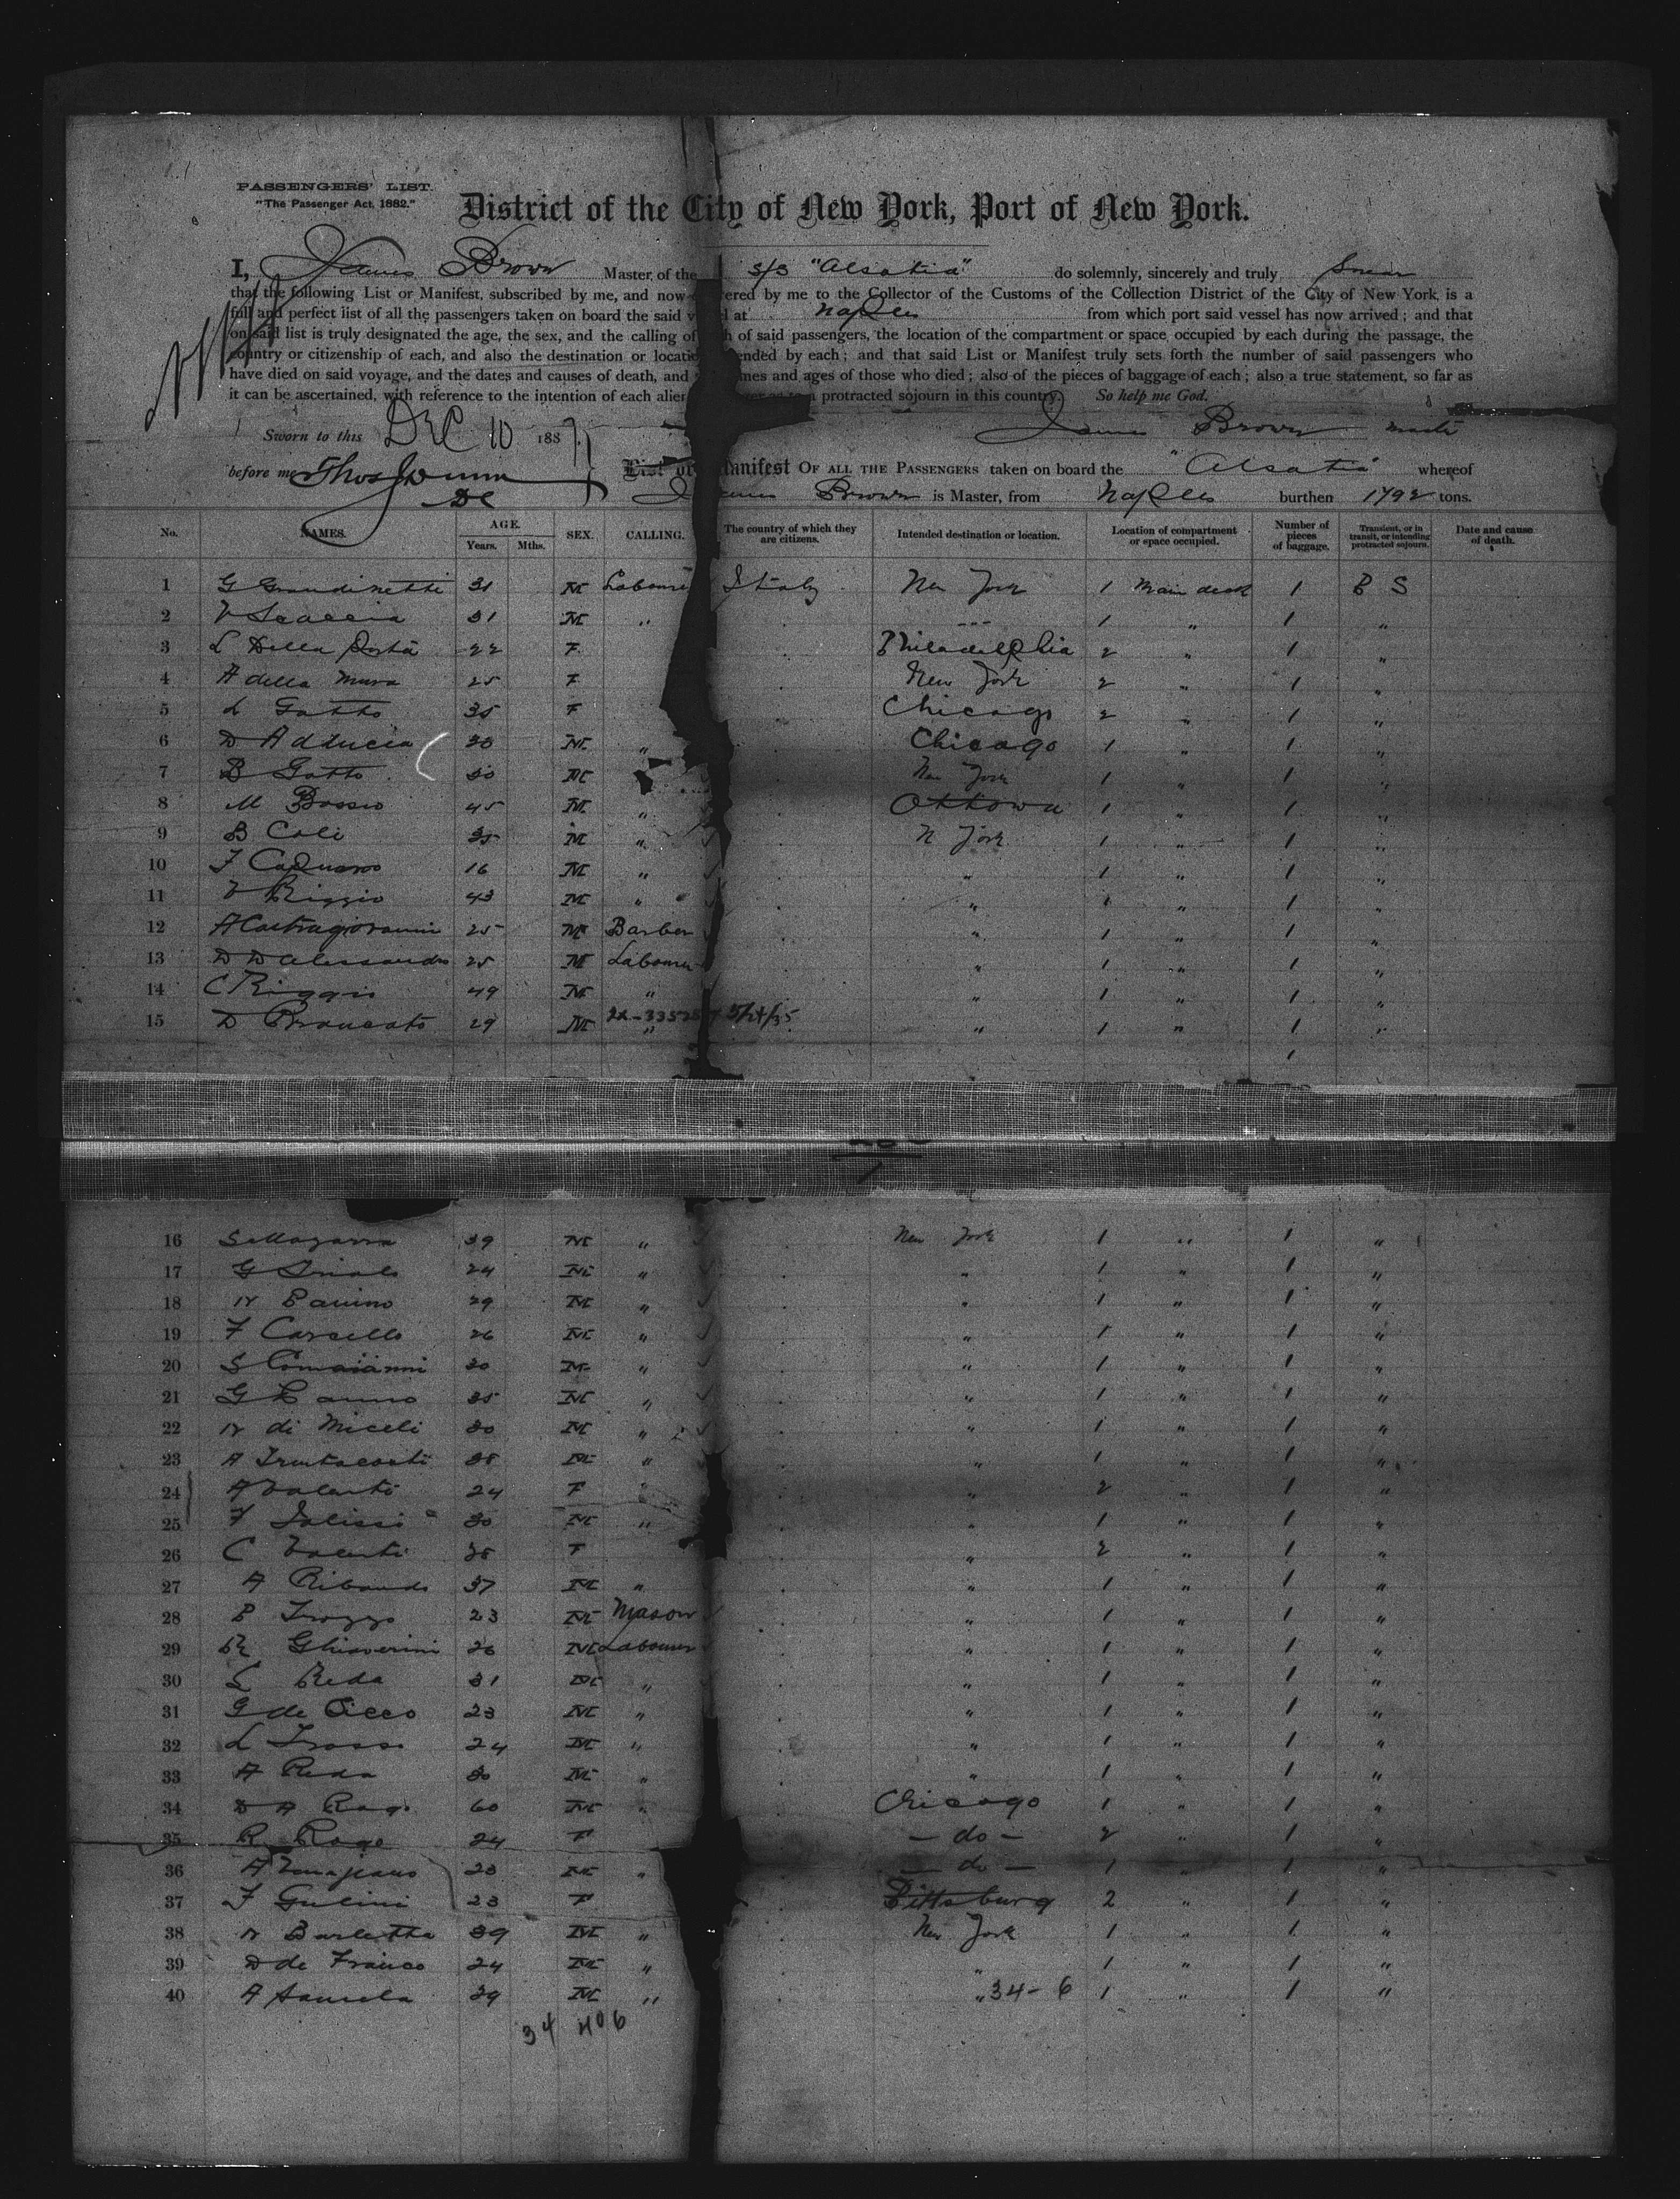 PASSENGERS' LIST.
"The Passenger Act, 1882."
District of the City of New York, Port of New York.
I, James Brown Master of the s/s "Alsatia" do solemnly, sincerely and truly Swear
that the following List or Manifest, subscribed by me, and now ered by me to the Collector of the Customs of the Collection District of the City of New York, is a
full and perfect list of all the passengers taken on board the said v l at Naples from which port said vessel has now arrived; and that
on said list is truly designated the age, the sex, and the calling of h of said passengers, the location of the compartment or space occupied by each during the passage, the
country or citizenship of each, and also the destination or locatio ended by each; and that said List or Manifest truly sets forth the number of said passengers who
have died on said voyage, and the dates and causes of death, and mes and ages of those who died; also of the pieces of baggage of each; also a true statement, so far as
it can be ascertained, with reference to the intention of each alien a protracted sojourn in this country. So help me God.
Sworn to this DEC 10 188 James Brown
before me
List or Manifest OF ALL THE PASSENGERS taken on board the "Alsatia" whereof
James Brown is Master, from Naples burthen 1792 tons.
No. NAMES. AGE. Years. Mths. SEX. CALLING. The country of which they are citizens. Intended destination or location. Location of compartment or space occupied. Number of pieces of baggage. Transient, or in transit, or intending protracted sojourn. Date and cause of death.
1 G Grandinetti 31 M Labourer Italy New York 1 Main deck 1 P S
2 V Scaccia 31 M " 1 " 1 "
3 L Della Porta 22 F Philadelphia 2 " 1 "
4 A della Mura 25 F New York 2 " 1 "
5 L Gatto 35 F Chicago 2 " 1 "
6 D Adducia M " Chicago 1 " 1 "
7 B Gatto 30 M New York 1 " 1 "
8 M Bosso 45 M " Ottowa 1 " 1 "
9 B Coli 35 M " N York 1 " 1 "
10 F Capuano 16 M " " 1 " 1 "
11 V Riggio 43 M " " 1 " 1 "
12 A Castrogiovanni 25 M Barber " 1 " 1 "
13 D D'Alessandro 25 M Labourer " 1 " 1 "
14 C Riggio 49 M " " 1 " 1 "
15 D Brancato 29 M " " 1 " 1 "
1
16 39 M " New York 1 " 1 "
17 G 24 M " " 1 " 1 "
18 N 29 M " " 1 " 1 "
19 F Carcello 26 M " " 1 " 1 "
20 S 30 M " " 1 " 1 "
21 G 35 M " " 1 " 1 "
22 N di Miceli 30 M " " 1 " 1 "
23 A Trentacosti 38 M " " 1 " 1 "
24 A Valenti 24 F " 2 " 1 "
25 F 30 M " " 1 " 1 "
26 C Valenti F " 2 " 1 "
27 A Ribaudo 37 M " " 1 " 1 "
28 23 M Mason " 1 " 1 "
29 26 M Labourer " 1 " 1 "
30 Reda 31 M " " 1 " 1 "
31 G de Cicco 23 M " " 1 " 1 "
32 L 24 M " " 1 " 1 "
33 A Reda 30 M " " 1 " 1 "
34 D A Rago 60 M " Chicago 1 " 1 "
35 R Rago 24 F - do - 2 " 1 "
36 A 23 M " - do - 1 " 1 "
37 F Gulini 23 F Pittsburg 2 " 1 "
38 N Barletta 39 M " New York 1 " 1 "
39 D de Franco 24 M " " 1 " 1 "
40 A 39 M " " 34-6 1 " 1 "